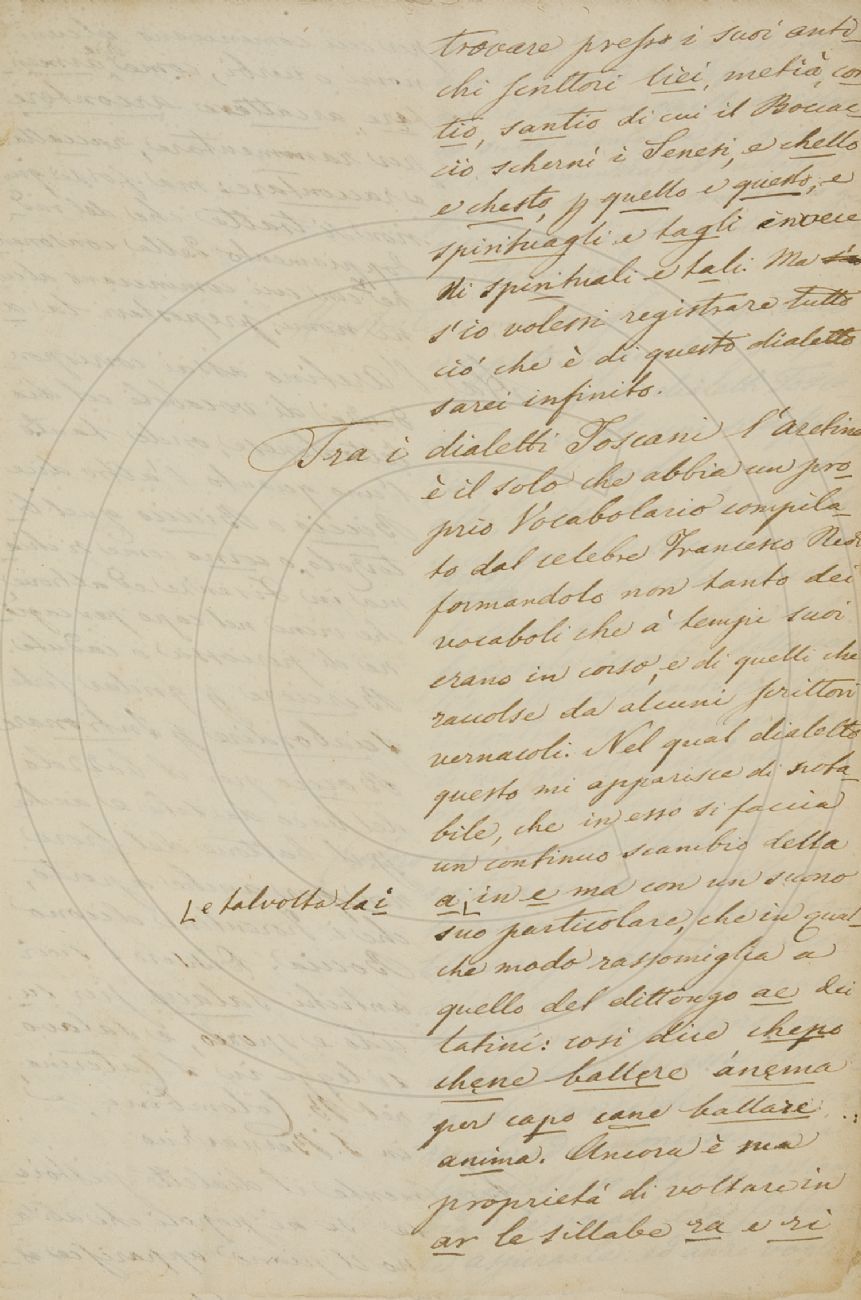 trovare presso i suoi anti-
chi scrittori lìei, metià, con
tio, santio di cui il Boccac-
cio schernì i Senesi, e chello
e chesto, p quello e questo, e
spirituagli e tagli invece
di spirituali e tali. Ma
s'io volessi registrare tutto
ciò che è di questo dialetto
sarei infinito.
Tra i dialetti Toscani l'aretino
è il solo che abbia un pro-
prio Vocabolario compila-
to dal celebre Francesco Redi
formandolo non tanto dei
vocaboli che a' tempi suoi
erano in corso, e di quelli che
raccolse da alcuni scrittori
vernacoli. Nel qual dialetto
questo mi apparisce di nota-
bile, che in esso si faccia
un continuo scambio della
a in e ma con un suono
e talvolta la i
suo particolare, che in qual-
che modo rassomiglia a
quello del dittongo ae dei
latini: così dice chępo
chęne battęre ánęma
per capo cane battare
anima. Ancora è sua
proprietà di voltare in
ar le sillabe ra e ri